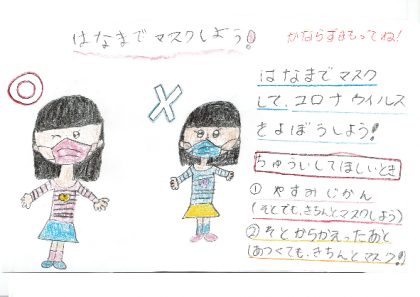 はなまでマスクしよう!
かならずまもってね!
はなまでマスク
して、コロナウイルス
をよぼうしよう!
ちゅういしてほしいとき
① やすみじかん
(そとでも、きちんとマスクしよう)
② そとからかえったあと
(あつくても、きちんとマスク!)